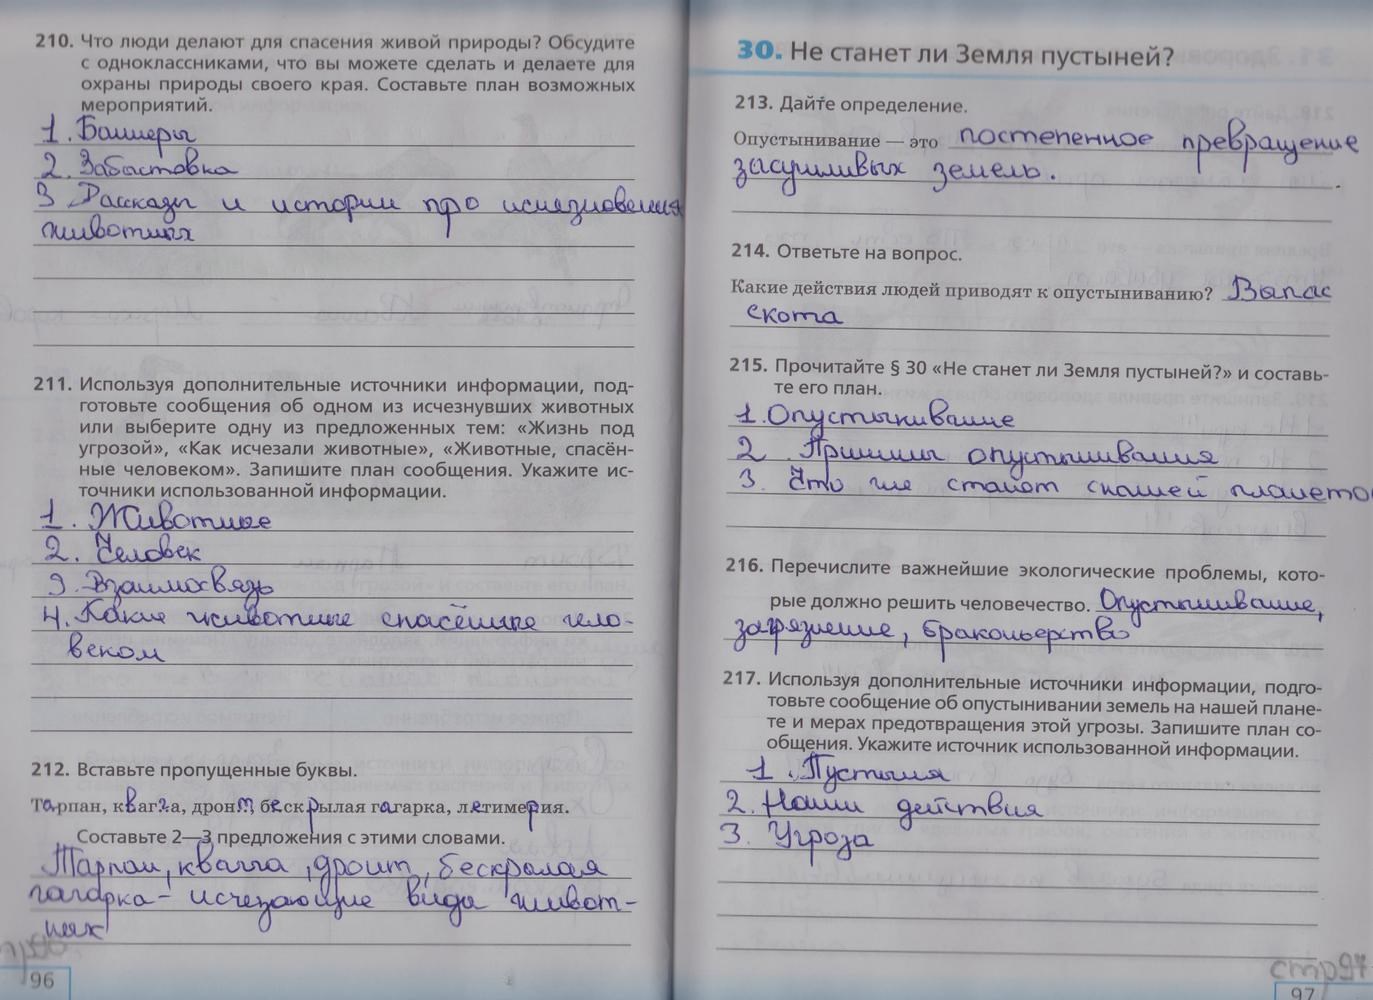 210. Что люди делают для спасения живой природы? Обсудите
с одноклассниками, что вы можете сделать и делаете для
охраны природы своего края. Составьте план возможных
мероприятий.
1. Баннеры
2. Забастовка
3 Рассказы и истории про исчезновения
животных
211. Используя дополнительные источники информации, под-
готовьте сообщения об одном из исчезнувших животных
или выберите одну из предложенных тем: «Жизнь под
угрозой», «Как исчезали животные», «Животные, спасён-
ные человеком». Запишите план сообщения. Укажите ис-
точники использованной информации.
1. Животные
2. Человек
3. Взаимосвязь
4. Какие животные спасённые чело-
веком
212. Вставьте пропущенные буквы.
Тарпан, квагга, дронт, бескрылая гагарка, летимерия.
Составьте 2—3 предложения с этими словами.
Тарпан, квагга, дронт, бескрылая
гагарка - исчезающие вида живот-
ных
стр96
96
30. Не станет ли Земля пустыней?
213. Дайте определение.
Опустынивание — это постепенное превращение
засушливых земель.
214. Ответьте на вопрос.
Какие действия людей приводят к опустыниванию? Выпас
скота
215. Прочитайте § 30 «Не станет ли Земля пустыней?» и составь-
те его план.
1. Опустынивание
2. Причины опустынивания
3. Что же станет с нашей плането
216. Перечислите важнейшие экологические проблемы, кото-
рые должно решить человечество. Опустынивание,
загрязнение, браконьерство
217. Используя дополнительные источники информации, подго-
товьте сообщение об опустынивании земель на нашей плане-
те и мерах предотвращения этой угрозы. Запишите план со-
общения. Укажите источник использованной информации.
1. Пустыня
2. Наши действия
3. Угроза
стр97
97